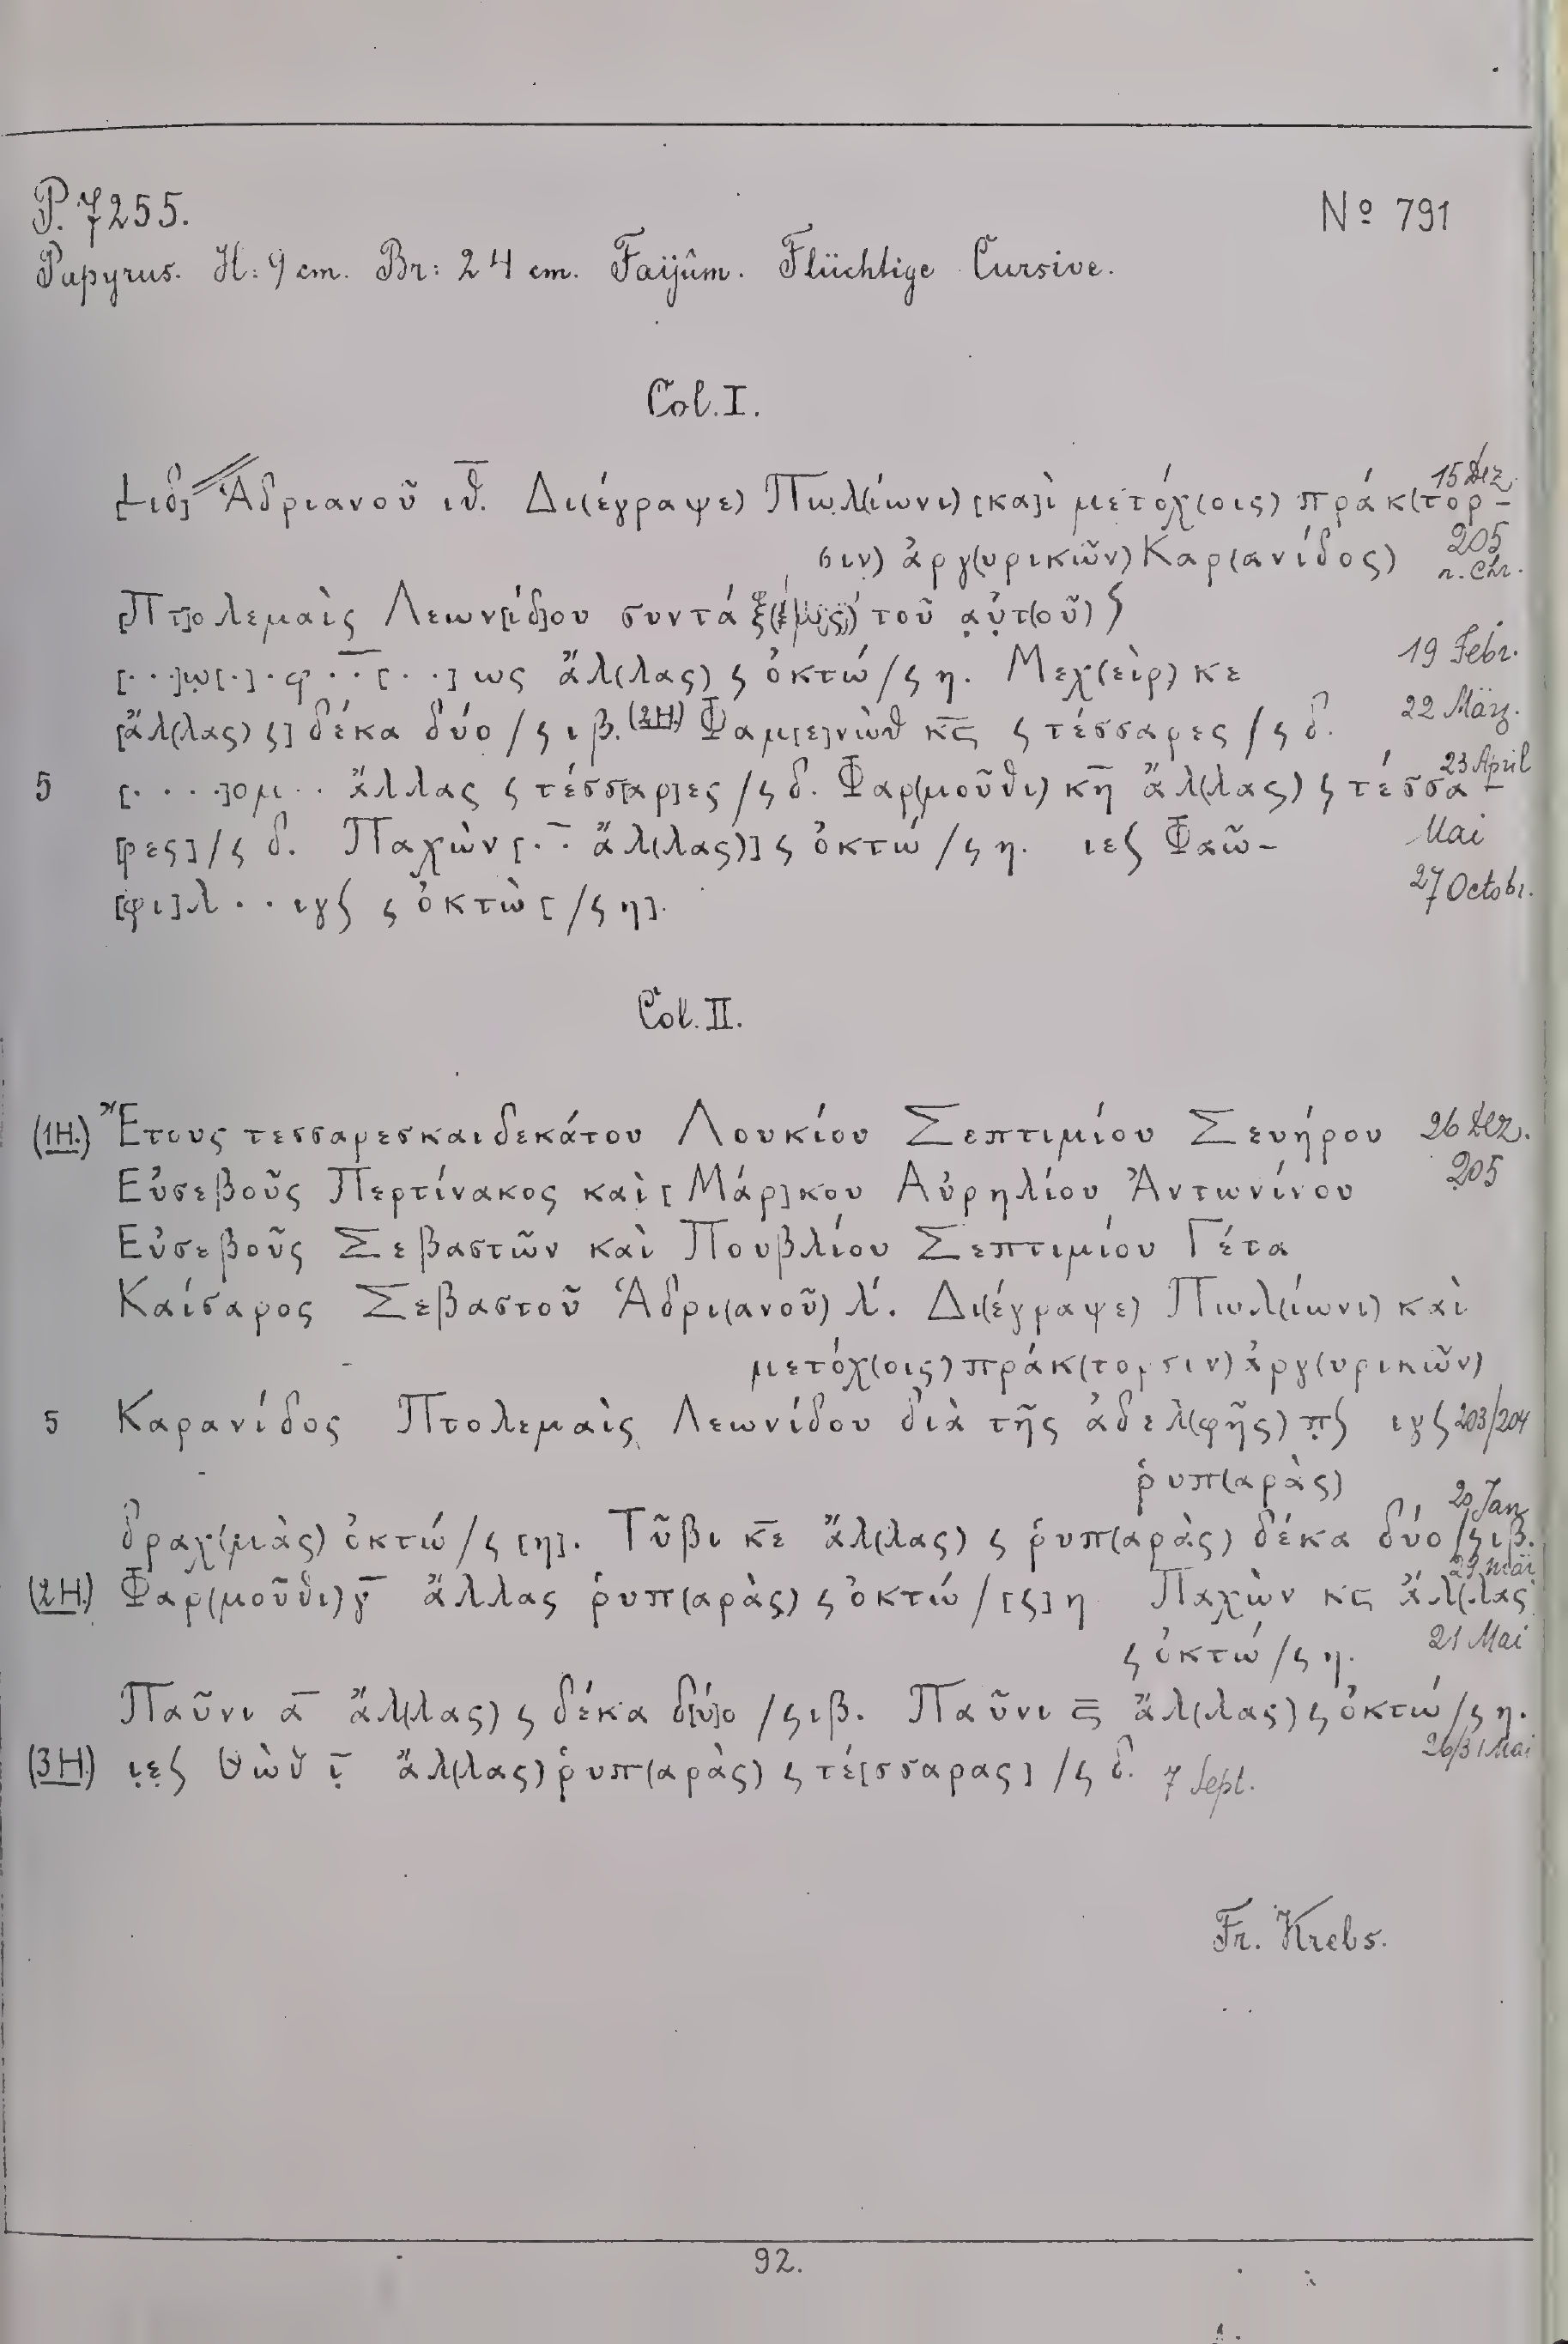 P. 7255.
Nº 791
Papyrus. H: 9 cm. Br: 24 cm. Faijûm. Flüchtige Cursive.
Col. I.
[𐅹ιδ]// Ἁδριανοῦ ιθ̅. Δι(έγραψε) Πωλ(ίωνι) [κα]ὶ μετόχ(οις) πράκ(τορ-
15 Dez.
σιν) ἀργ(υρικῶν) Καρ(ανίδος)
205
n. Chr.
[Πτ]ολεμαὶς Λεων[ίδ]ου συντάξ( ) τοῦ αὐτ(οῦ) ϛ
[· · ·]ω[·] · φ · · [· ·]ως ἄλ(λας) ϛ ὀκτώ / ϛ η. Μεχ(εὶρ) κε
19 Febr.
[ἄλ(λας) ϛ] δέκα δύο / ϛ ιβ. (2H.) Φαμ[ε]νὼθ κϛ̅ ϛ τέσσαρες / ϛ δ.
22 März.
5 [· · · ·]ομ · · ἄλλας ϛ τέσσ[αρ]ες / ϛ δ. Φαρ(μοῦθι) κη̅ ἄλ(λας) ϛ τέσσα-
23 April
[ρες] / ϛ δ. Παχὼν [· · ἄλ(λας)] ϛ ὀκτώ / ϛ η. ιεϛ Φαῶ-
Mai
[φι] λ · · ιγϛ ϛ ὀκτὼ [/ ϛ η].
27 Octobr.
Col. II.
(1H.) Ἔτους τεσσαρεσκαιδεκάτου Λουκίου Σεπτιμίου Σευήρου
26 Dez.
205
Εὐσεβοῦς Περτίνακος καὶ [Μάρ]κου Αὐρηλίου Ἀντωνίνου
Εὐσεβοῦς Σεβαστῶν καὶ Πουβλίου Σεπτιμίου Γέτα
Καίσαρος Σεβαστοῦ Ἁδρι(ανοῦ) λ´. Δι(έγραψε) Πωλ(ίωνι) καὶ
μετόχ(οις) πράκ(τορσιν) ἀργ(υρικῶν)
5 Καρανίδος Πτολεμαὶς Λεωνίδου διὰ τῆς ἀδελ(φῆς) π̣ϛ ιγϛ
203/204
ῥυπ(αρὰς)
δραχ(μιὰς) ὀκτώ / ϛ [η]. Τῦβι κε̅ ἄλ(λας) ϛ ῥυπ(αρὰς) δέκα δύο / ϛ ιβ.
20 Jan.
(2H.) Φαρ(μοῦθι) γ̅ ἄλλας ῥυπ(αρὰς) ϛ ὀκτώ / [ϛ] η Παχὼν κϛ ἄλ(λας)
29 März
ϛ ὀκτώ / ϛ η.
21 Mai
Παῦνι α̅ ἄλ(λας) ϛ δέκα δ[ύ]ο / ϛ ιβ. Παῦνι ϛ̅ ἄλ(λας) ϛ ὀκτώ / ϛ η.
26/31 Mai
(3H.) ι̣ε̣ϛ Θὼθ ι̣̅ ἄλ(λας) ῥυπ(αρὰς) ϛ τέ[σσαρας] / ϛ δ. 7 Sept.
Fr. Krebs.
92.